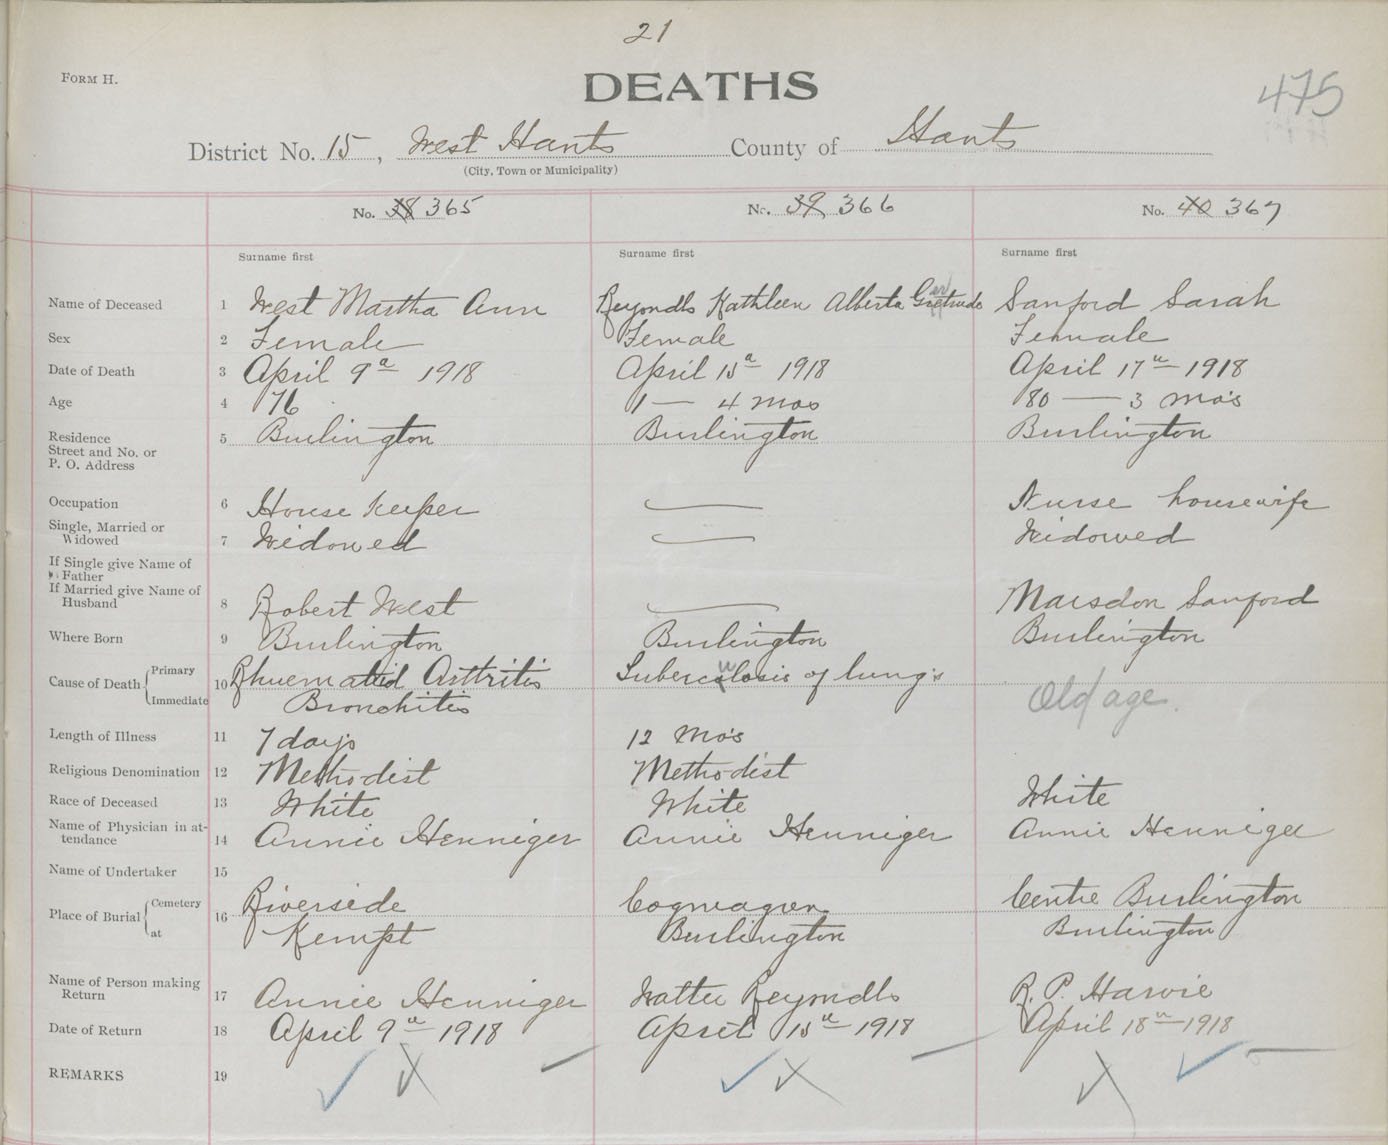 21
FORM H.
DEATHS
475
District No. 15, West Hants County of Hants
(City, Town or Municipality)
No. 38 365 No. 39 366 No. 40 367
Surname first Surname first Surname first
Name of Deceased 1 West Martha Ann Reynolds Kathleen Alberta Gertrude Sanford Sarah
Sex 2 Female Female Female
Date of Death 3 April 9th 1918 April 15th 1918 April 17th 1918
Age 4 76 1 — 4 mos 80 — 3 mo's
Residence 5 Burlington Burlington Burlington
Street and No. or
P. O. Address
Occupation 6 House Keeper — Nurse housewife
Single, Married or
Widowed 7 Widowed — Widowed
If Single give Name of
Father
If Married give Name of
Husband 8 Robert West — Marsdon Sanford
Where Born 9 Burlington Burlington Burlington
Cause of Death Primary 10 Rhuematid Arttritis Tuberculosis of lung's
Immediate Bronchitis Old age.
Length of Illness 11 7 days 12 Mo's
Religious Denomination 12 Methodist Methodist
Race of Deceased 13 White White White
Name of Physician in at-
tendance 14 Annie Henniger Annie Henniger Annie Henniger
Name of Undertaker 15
Place of Burial Cemetery 16 Riverside Cogmagun Centre Burlington
at Kempt Burlington Burlington
Name of Person making
Return 17 Annie Henniger Walter Reynolds R. P. Harvie
Date of Return 18 April 9th 1918 April 15th 1918 April 18th 1918
REMARKS 19